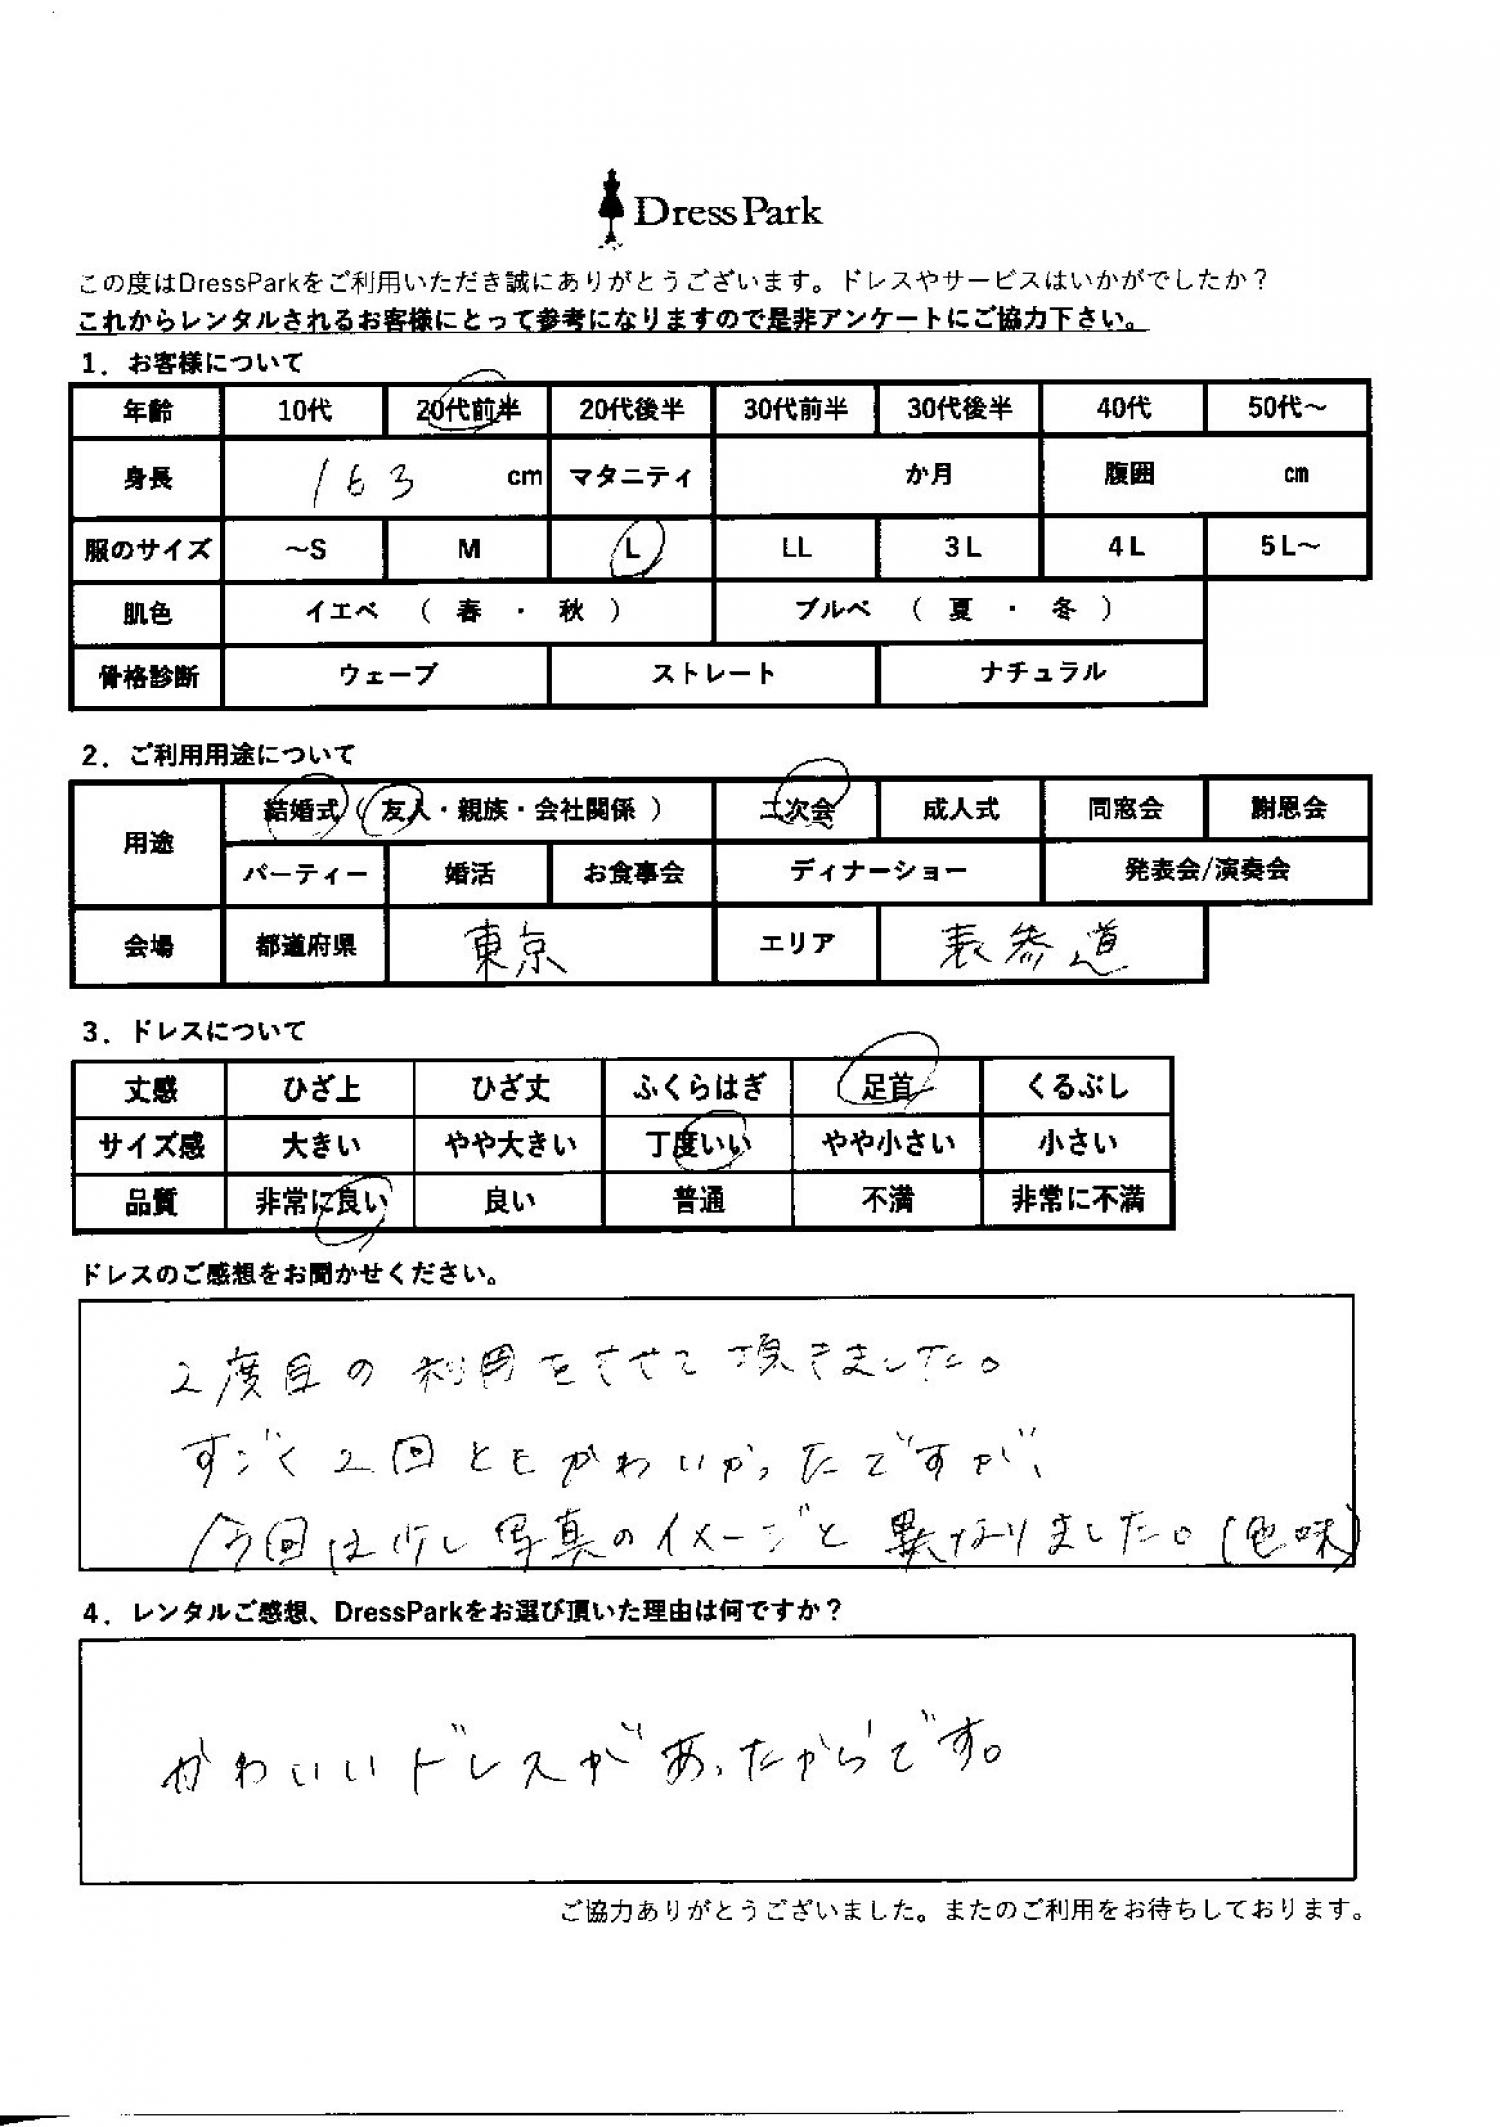 Dress Park
この度はDressParkをご利用いただき誠にありがとうございます。ドレスやサービスはいかがでしたか？
これからレンタルされるお客様にとって参考になりますので是非アンケートにご協力下さい。
1．お客様について
年齢 10代 20代前半 20代後半 30代前半 30代後半 40代 50代～
身長 163 cm マタニティ か月 腹囲 cm
服のサイズ ～S M L LL 3L 4L 5L～
肌色 イエベ （ 春 ・ 秋 ） ブルベ （ 夏 ・ 冬 ）
骨格診断 ウェーブ ストレート ナチュラル
2．ご利用用途について
用途 結婚式（ 友人・親族・会社関係 ） 二次会 成人式 同窓会 謝恩会
パーティー 婚活 お食事会 ディナーショー 発表会/演奏会
会場 都道府県 東京 エリア 表参道
3．ドレスについて
丈感 ひざ上 ひざ丈 ふくらはぎ 足首 くるぶし
サイズ感 大きい やや大きい 丁度いい やや小さい 小さい
品質 非常に良い 良い 普通 不満 非常に不満
ドレスのご感想をお聞かせください。
2度目の利用をさせて頂きました。
すごく2回ともかわいかったですが、
今回は少し写真のイメージと異なりました。(色味)
4．レンタルご感想、DressParkをお選び頂いた理由は何ですか？
かわいいドレスがあったからです。
ご協力ありがとうございました。またのご利用をお待ちしております。